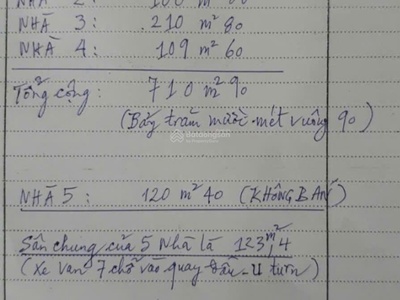 NHÀ 2:
NHÀ 3: 210 m² 80
NHÀ 4: 109 m² 60
Tổng cộng: 710 m² 90
(Bảy trăm mười mét vuông 90)
NHÀ 5: 120 m² 40 (KHÔNG BÁN)
Sân chung của 5 Nhà là 123 m², 4
(Xe van 7 chỗ vào quay đầu - U turn)